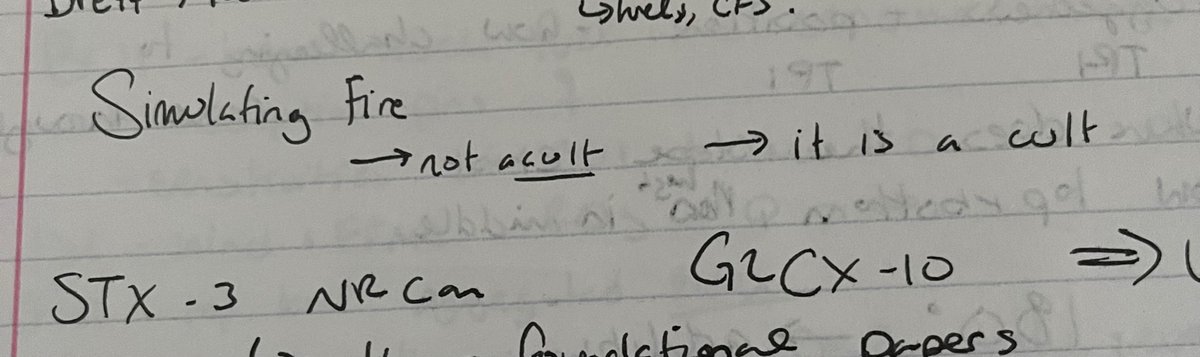 Brett
↳ CFS.
Simulating Fire
→ not a cult → it is a cult
STX - 3 NR Can G2CX-10 ⇒
foundational papers